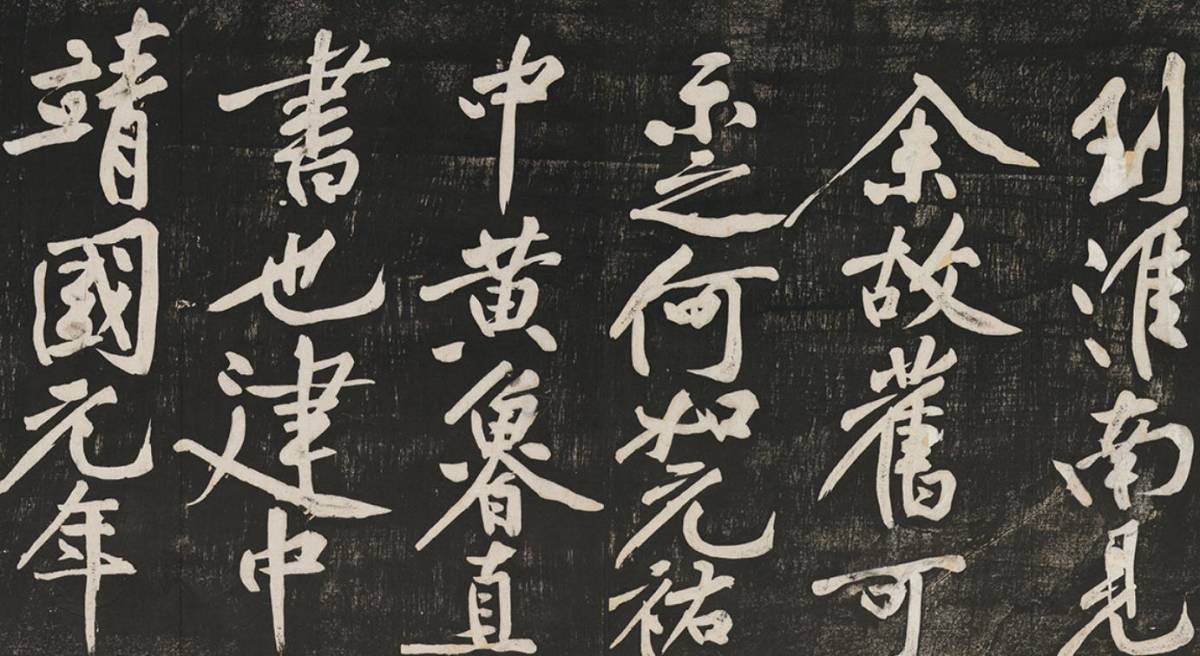 到淮南見
余故舊可
示之何如元祐
中黃魯直
書也建中
靖國元年